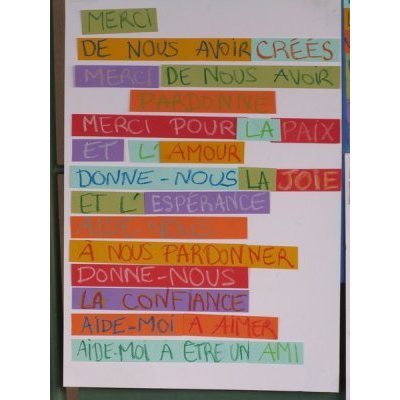 MERCI
DE NOUS AVOIR CRÉÉS
MERCI DE NOUS AVOIR
PARDONNE
MERCI POUR LA PAIX
ET L' AMOUR
DONNE-NOUS LA JOIE
ET L' ESPÉRANCE
AIDE-NOUS
À NOUS PARDONNER
DONNE-NOUS
LA CONFIANCE
AIDE-MOI A AIMER
AIDE-MOI A ETRE UN AMI